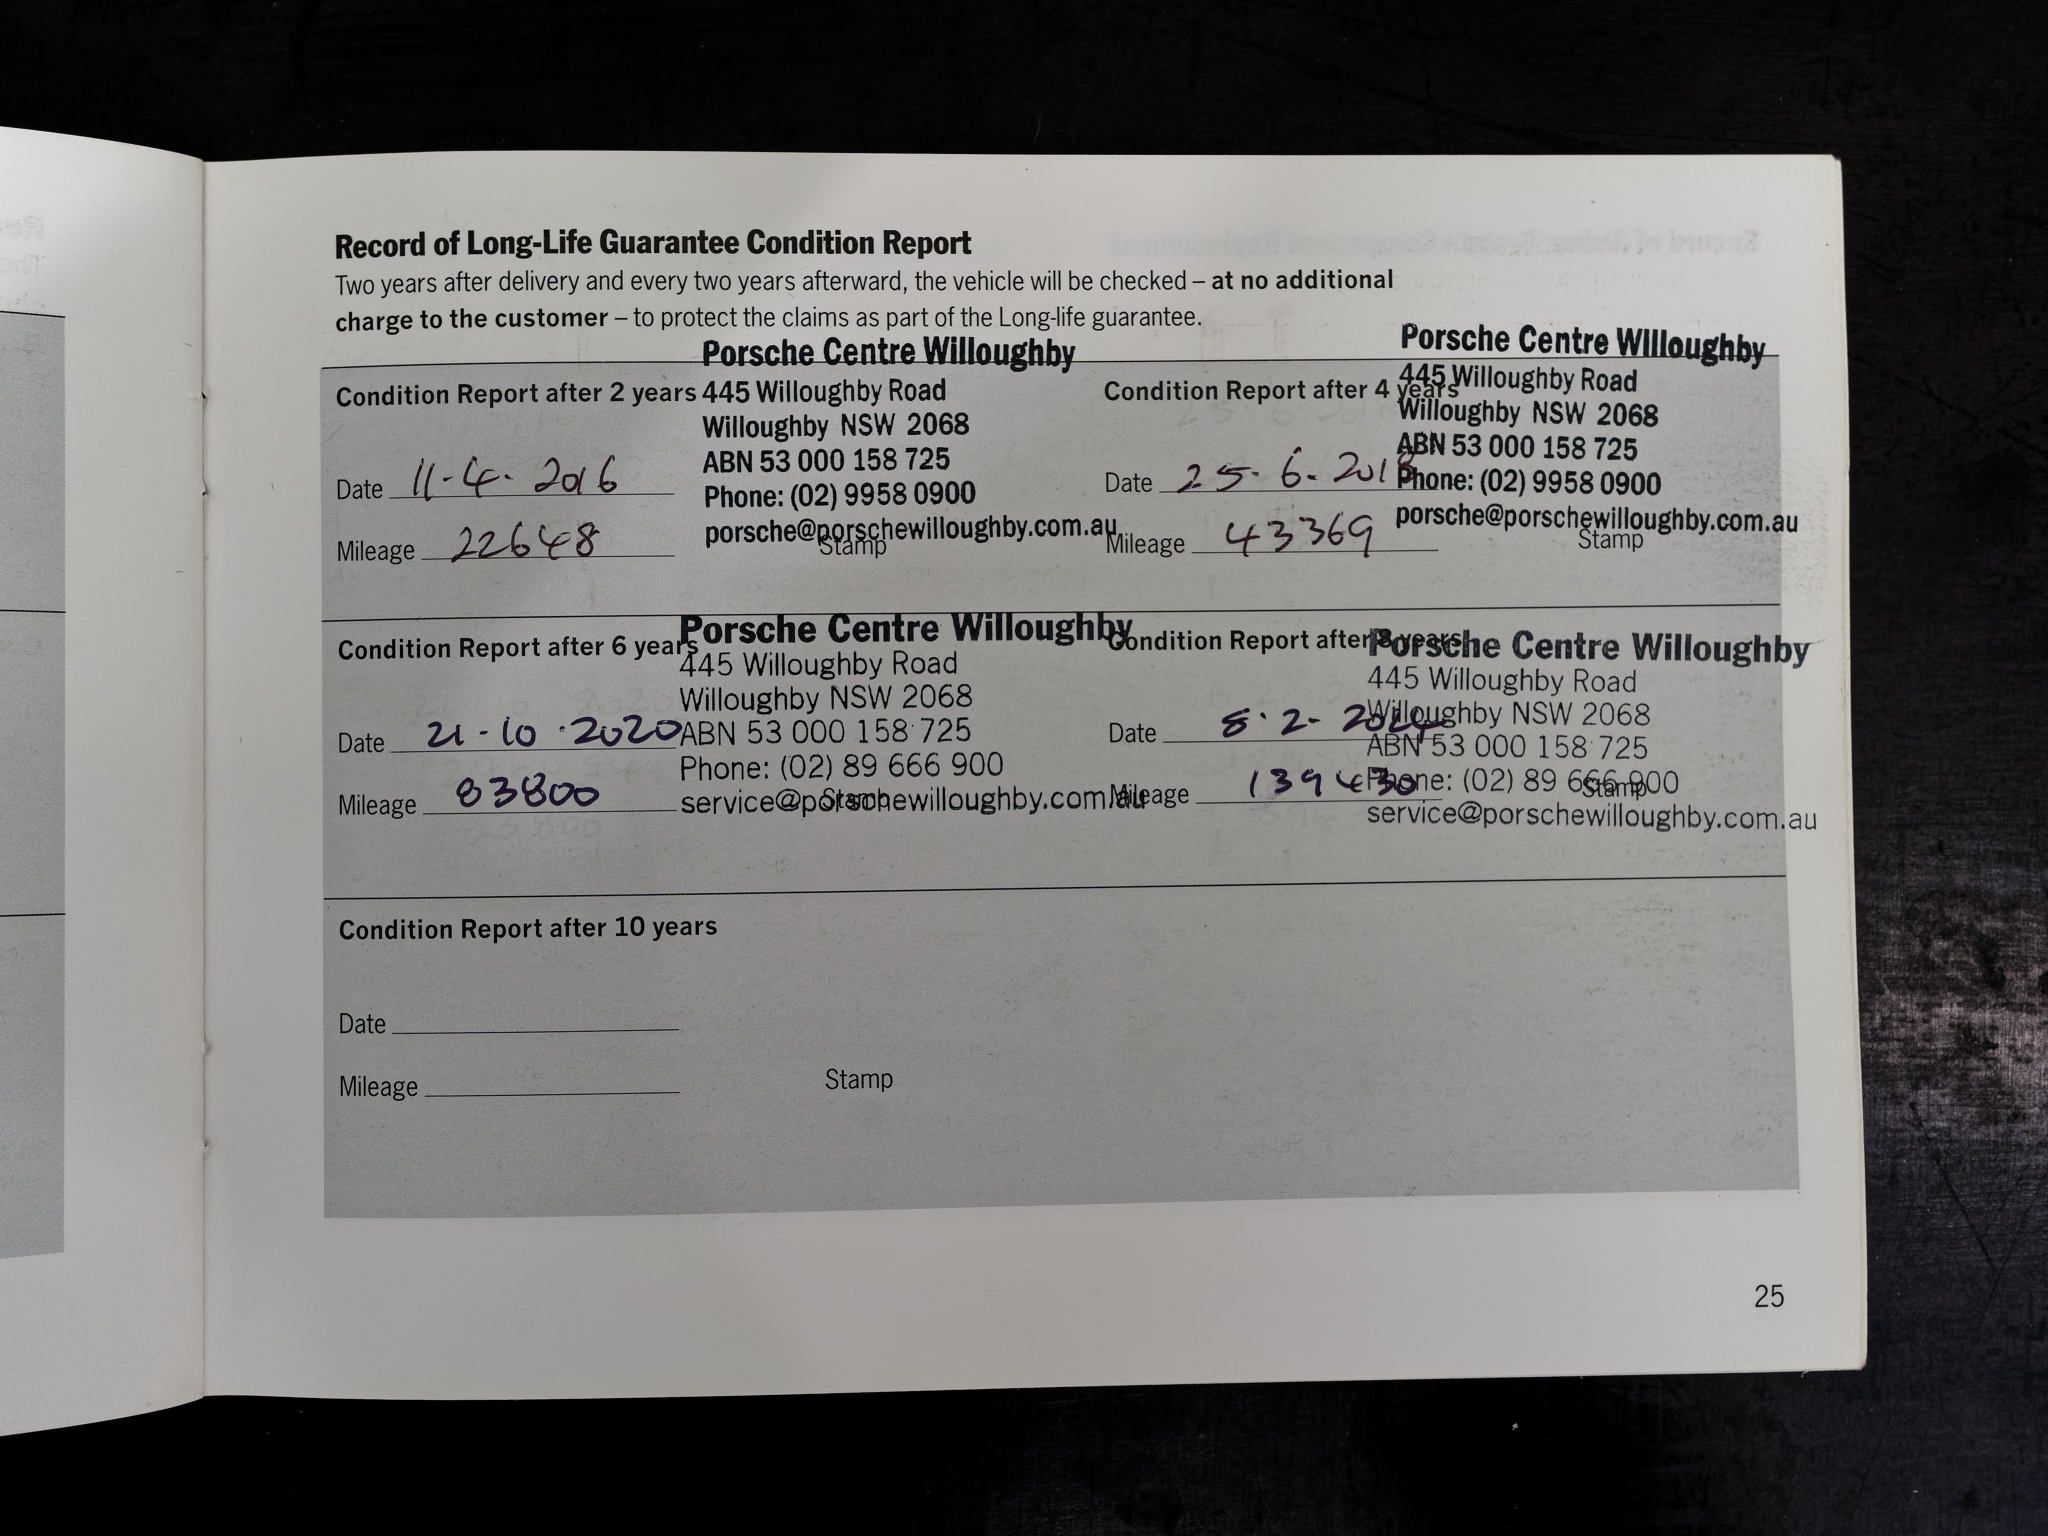 Record of Long-Life Guarantee Condition Report
Two years after delivery and every two years afterward, the vehicle will be checked – at no additional
charge to the customer – to protect the claims as part of the Long-life guarantee.
Condition Report after 2 years
Date 11-4-2016
Mileage 22648
Porsche Centre Willoughby
445 Willoughby Road
Willoughby NSW 2068
ABN 53 000 158 725
Phone: (02) 9958 0900
porsche@porschewilloughby.com.au
Stamp
Condition Report after 4 years
Date 25-6-2018
Mileage 43369
Porsche Centre Willoughby
445 Willoughby Road
Willoughby NSW 2068
ABN 53 000 158 725
Phone: (02) 9958 0900
porsche@porschewilloughby.com.au
Stamp
Condition Report after 6 years
Date 21-10-2020
Mileage 83800
Porsche Centre Willoughby
445 Willoughby Road
Willoughby NSW 2068
ABN 53 000 158 725
Phone: (02) 89 666 900
service@porschewilloughby.com.au
Stamp
Condition Report after 8 years
Date 8-2-2024
Mileage 139430
Porsche Centre Willoughby
445 Willoughby Road
Willoughby NSW 2068
ABN 53 000 158 725
Phone: (02) 89 666 900
service@porschewilloughby.com.au
Stamp
Condition Report after 10 years
Date
Mileage
Stamp
25